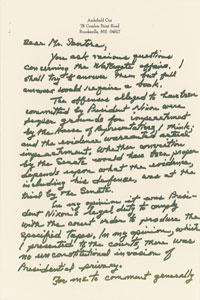 Archibald Cox
78 Condon Point Road
Brooksville, ME 04617
Dear Mr. Sanchez,
You ask various questions
concerning the Watergate affair. I
shall try to answer them but full
answers would require a book.
The offenses alleged to have been
committed by President Nixon were
proper grounds for impeachment
by the House of Representatives, I think;
and the evidence warranted
impeachment. Whether conviction
by the Senate would have been proper
depends upon what the evidence,
including his defense, was at the
trial by the Senate.
In my opinion it was Presi-
dent Nixon's legal duty to comply
with the court order to produce the
specified tapes. In my opinion, which
I presented to the courts, there was
no unconstitutional invasion of
Presidential privacy.
For me to comment generally